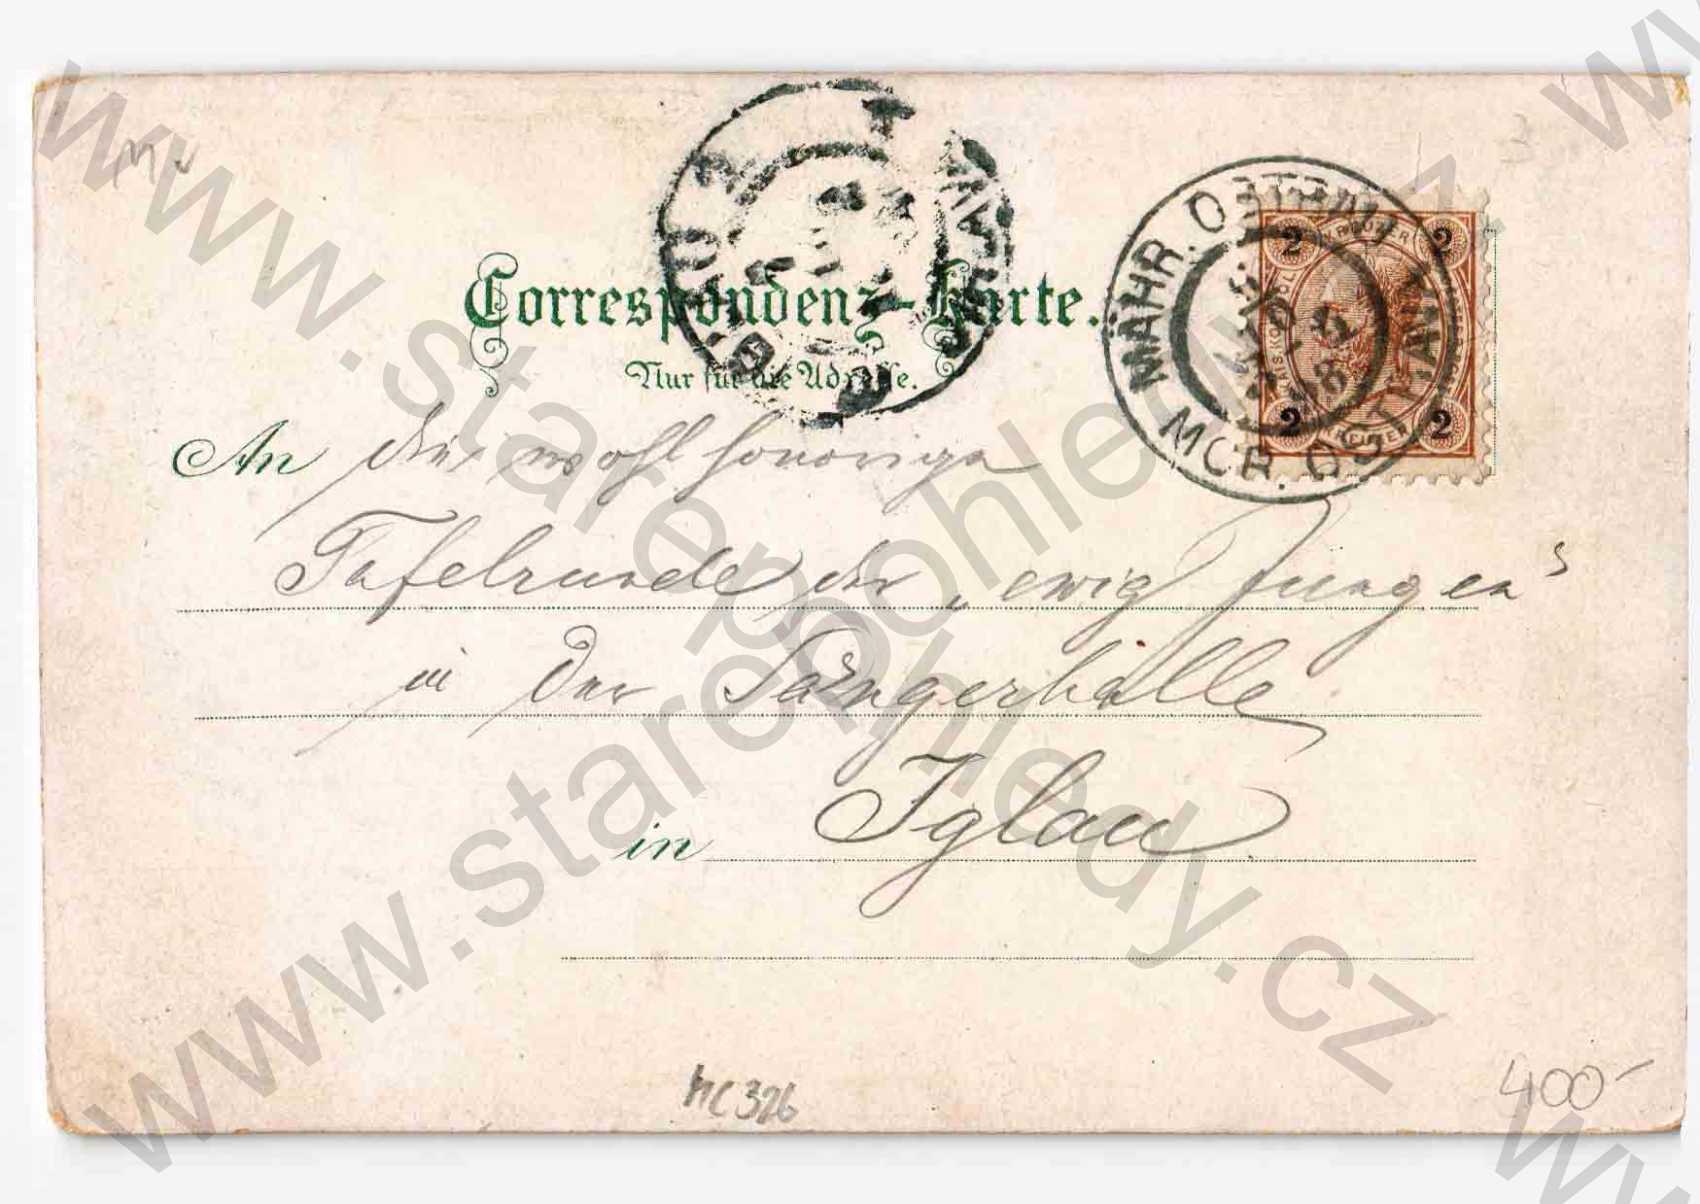 Correspondenz-Karte.
Nur für die Adresse.
MÄHR. OSTRAU
MOR. OSTRAVA
98
2 2
2 2
KREUZER
An die wohl honorige
Tafelrunde der „ewig Jungen"
in der Sängerhalle
in Iglau
MC 326
400-
3
www.starepohledy.cz
www.starepohledy.cz